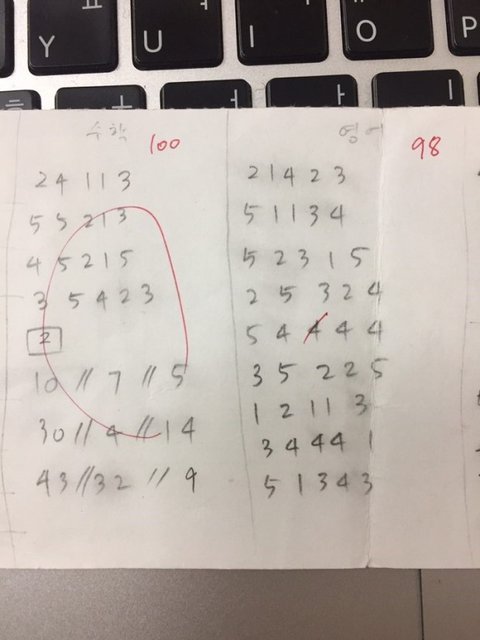 Y ㅛ
U ㅕ
I ㅑ
O
P
수학 100
24 11 3
5 5 2 1 3
4 5 2 1 5
3 5 4 2 3
2
10 // 7 // 5
30 // 4 // 14
43 // 32 // 9
영어 98
2 1 4 2 3
5 1 1 3 4
5 2 3 1 5
2 5 3 2 4
5 4 4 4 4
3 5 2 2 5
1 2 1 1 3
3 4 4 4 1
5 1 3 4 3